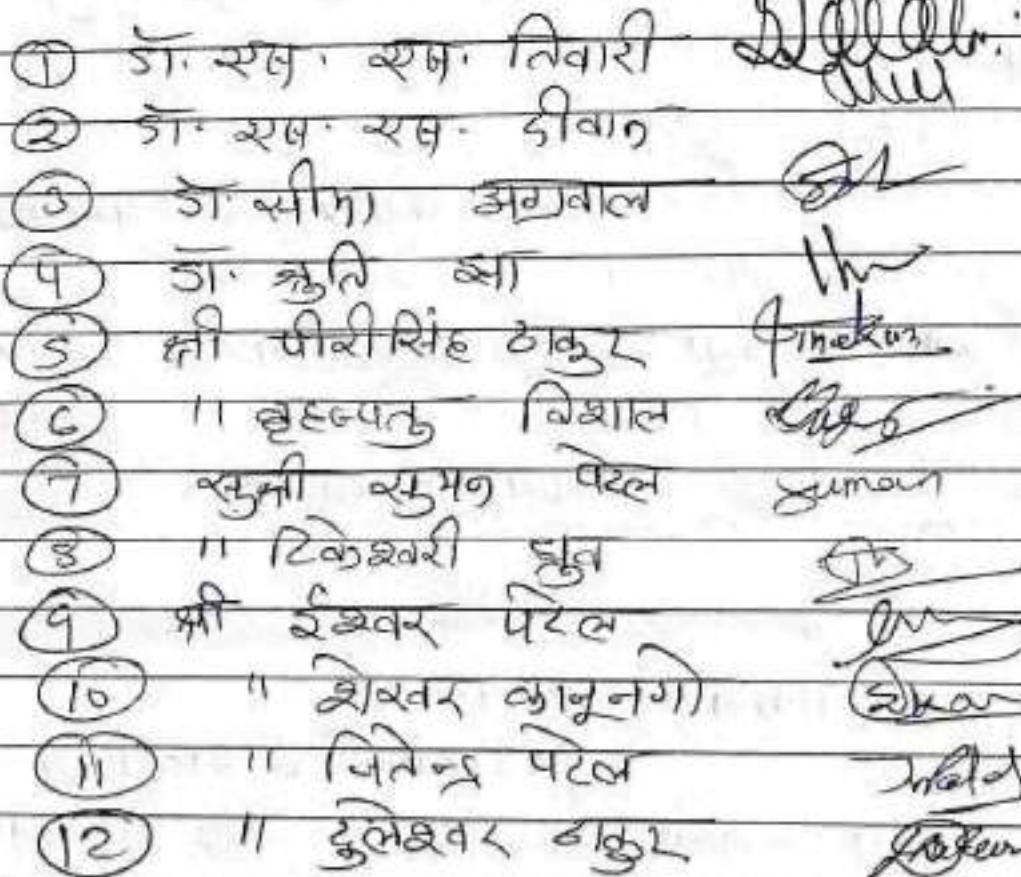 ① डॉ. एस. एस. तिवारी
② डॉ. एस. एस. दीवान
③ डॉ. सीमा अग्रवाल
④ डॉ. श्रुति झा
⑤ श्री पीरीसिंह ठाकुर
⑥ " विशाल
⑦ सुश्री सुमन पटेल Suman
⑧ " टिकेश्वरी ध्रुव
⑨ श्री ईश्वर पटेल
⑩ " शेखर कानूनगो
⑪ " जितेन्द्र पटेल
⑫ " दुलेश्वर ठाकुर